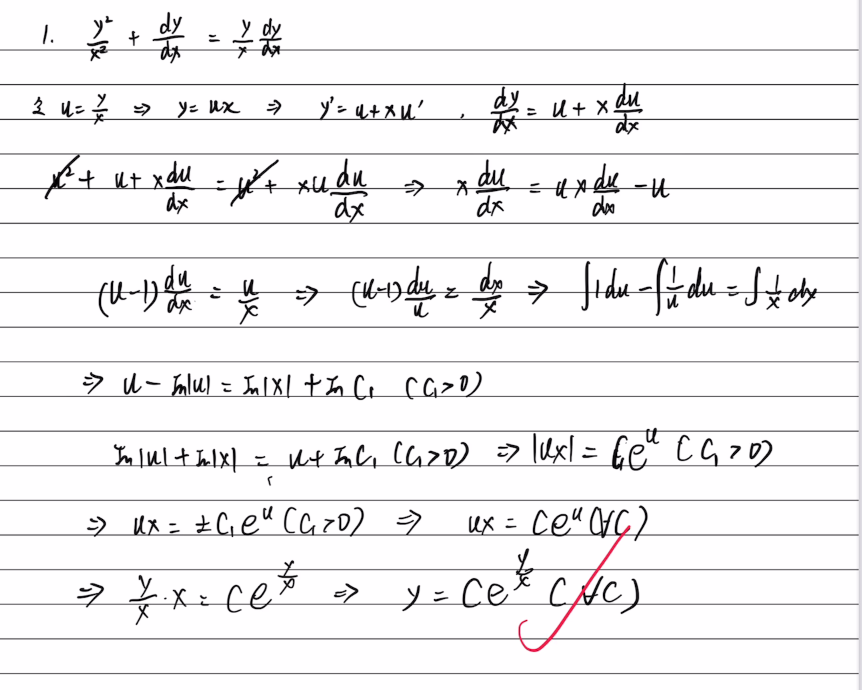 1. y²/x² + dy/dx = y/x dy/dx
令 u = y/x ⇒ y = ux ⇒ y' = u + xu' , dy/dx = u + x du/dx
u² + u + x du/dx = u² + xu du/dx ⇒ x du/dx = ux du/dx - u
(u-1) du/dx = u/x ⇒ (u-1) du/u = dx/x ⇒ ∫1du - ∫1/u du = ∫1/x dx
⇒ u - ln|u| = ln|x| + ln C₁ (C₁>0)
ln|u| + ln|x| = u + ln C₁ (C₁>0) ⇒ |ux| = C₁e^u (C₁>0)
⇒ ux = ±C₁e^u (C₁>0) ⇒ ux = Ce^u (∀C)
⇒ y/x · x = Ce^(y/x) ⇒ y = Ce^(y/x) (∀C)